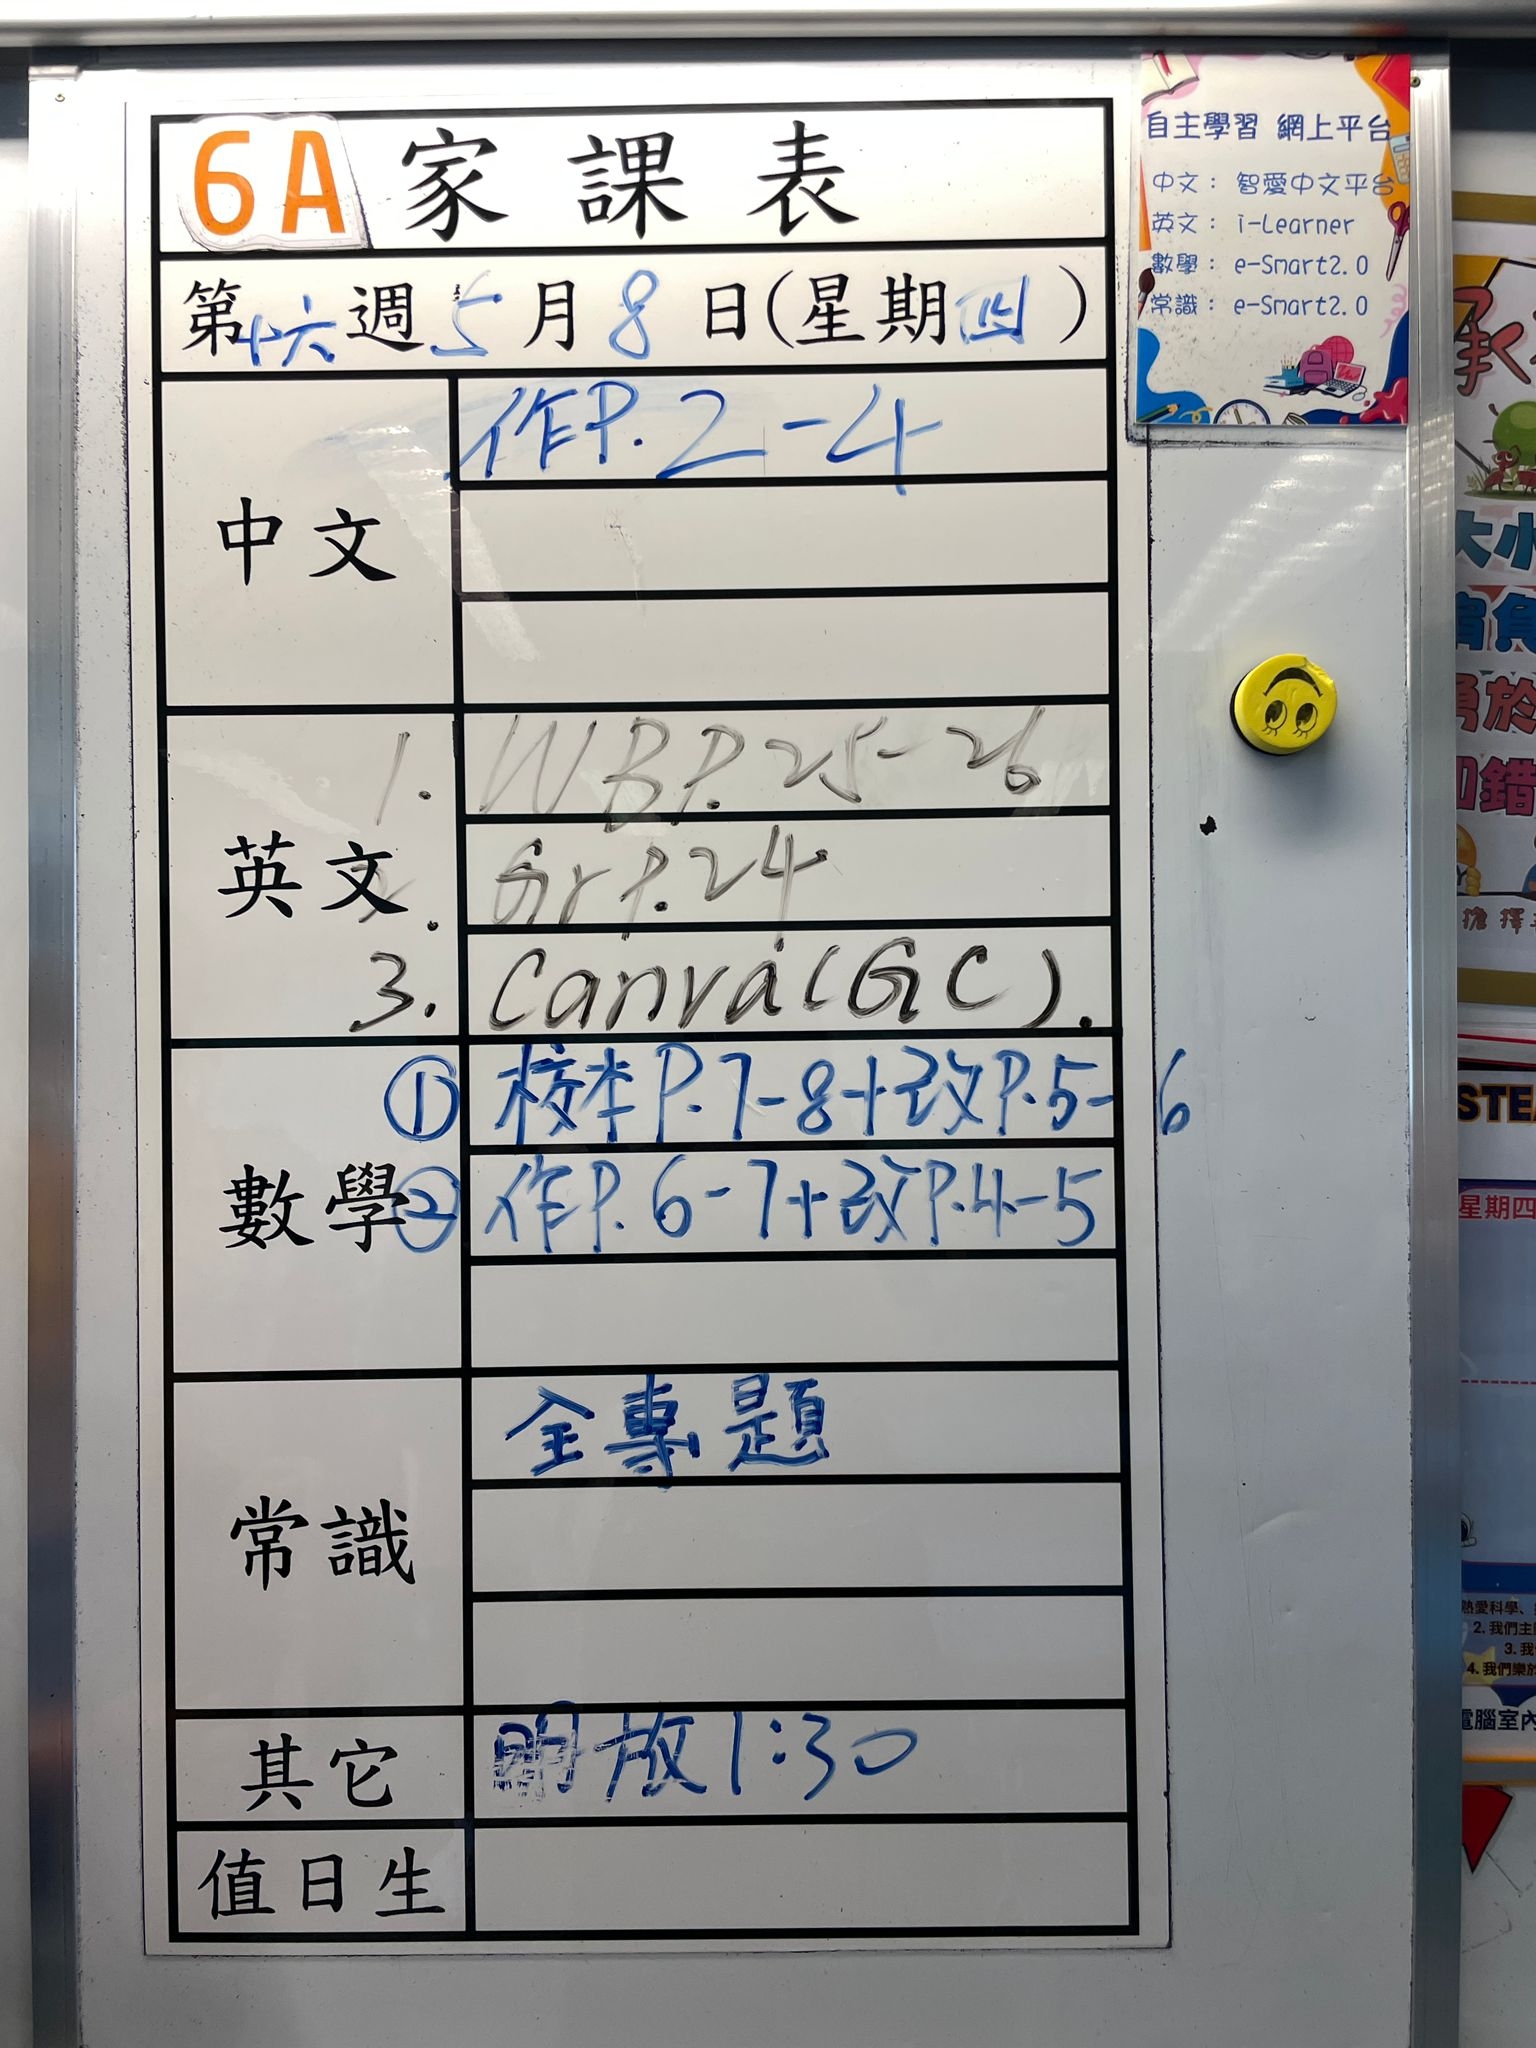 6A 家課表
第十六週 5月8日(星期四)
中文
作P.2-4
英文
1. WB P.25-26
2. Gr P.24
3. Canva(GC).
數學
① 校本P.7-8+改P.5-6
② 作P.6-7+改P.4-5
常識
全專題
其它
明放1:30
值日生
自主學習 網上平台
中文： 智愛中文平台
英文： i-Learner
數學： e-Smart2.0
常識： e-Smart2.0
承
大小
肩負
勇於
知錯
擔 擇
STE
星期四
熱愛科學、
2. 我們主
3. 我
4. 我們樂於
電腦室內